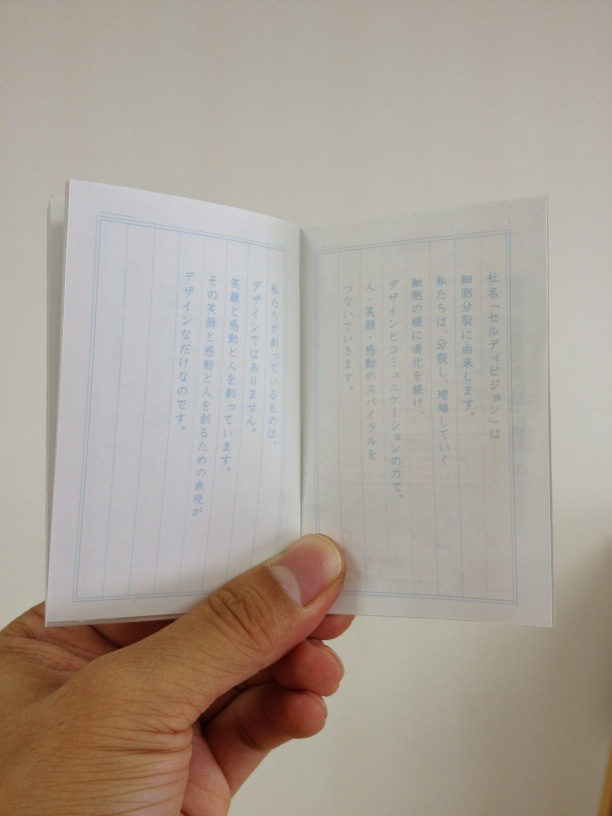 社名「セルディビジョン」は
細胞分裂に由来します。
私たちは、分裂し、増殖していく
細胞の様に進化を続け、
デザインとコミュニケーションの力で、
人・笑顔・感動のスパイラルを
つないでいきます。
私たちが創っているものは、
デザインではありません。
笑顔と感動と人を創っています。
その笑顔と感動と人を創るための表現が
デザインなだけなのです。